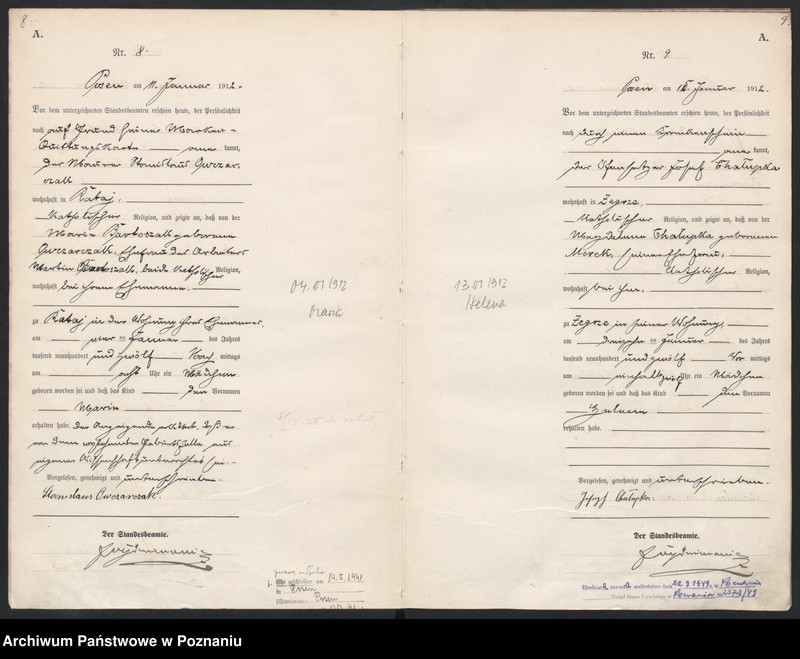 8.
A.
Nr. 8.
Posen am 11. Januar 1912.
Vor dem unterzeichneten Standesbeamten erschien heute, der Persönlichkeit
nach auf Grund seiner Marken-
Quittungskarte kannt,
der Maurer Stanislaus Owczar-
czak
wohnhaft in Rataj,
katholischer Religion, und zeigte an, daß von der
Maria Bartoszak geborenen
Owczarczak, Ehefrau des Arbeiters
Martin Bartoszak, beide katholischer Religion,
wohnhaft bei ihrem Ehemanne,
zu Rataj in der Wohnung ihres Ehemannes,
am vier ten Januar des Jahres
tausend neunhundert und zwölf Nach mittags
um acht Uhr ein Mädchen
geboren worden sei und daß das Kind den Vornamen
Maria
erhalten habe. Der Anzeigende erklärt, daß er
von dem Geburtsfalle aus
eigener Wissenschaft unterrichtet sei.
Vorgelesen, genehmigt und unterschrieben.
Stanislaus Owczarczak.
Der Standesbeamte.
04.01.1912
Maria
14.5.1941
in Posen
Posen
9.
A.
Nr. 9
Posen am 15. Januar 1912.
Vor dem unterzeichneten Standesbeamten erschien heute, der Persönlichkeit
nach durch einen Krankenschein
kannt,
der Ofensetzer Josef Chałupka
wohnhaft in Zegrze,
katholischer Religion, und zeigte an, daß von der
Magdalena Chałupka geborenen
Merck, seiner Ehefrau,
katholischer Religion,
wohnhaft bei ihm,
zu Zegrze in seiner Wohnung,
am dreizehn ten Januar des Jahres
tausend neunhundert und zwölf Vor mittags
um Uhr ein Mädchen
geboren worden sei und daß das Kind den Vornamen
Helena
erhalten habe.
Vorgelesen, genehmigt und unterschrieben.
Józef Chałupka
Der Standesbeamte.
13.01.1912
Helena
zawarła małżeństwo dnia 22.9.1949. w Poznaniu
Urząd Stanu Cywilnego w Poznaniu Nr 2373/49
Archiwum Państwowe w Poznaniu